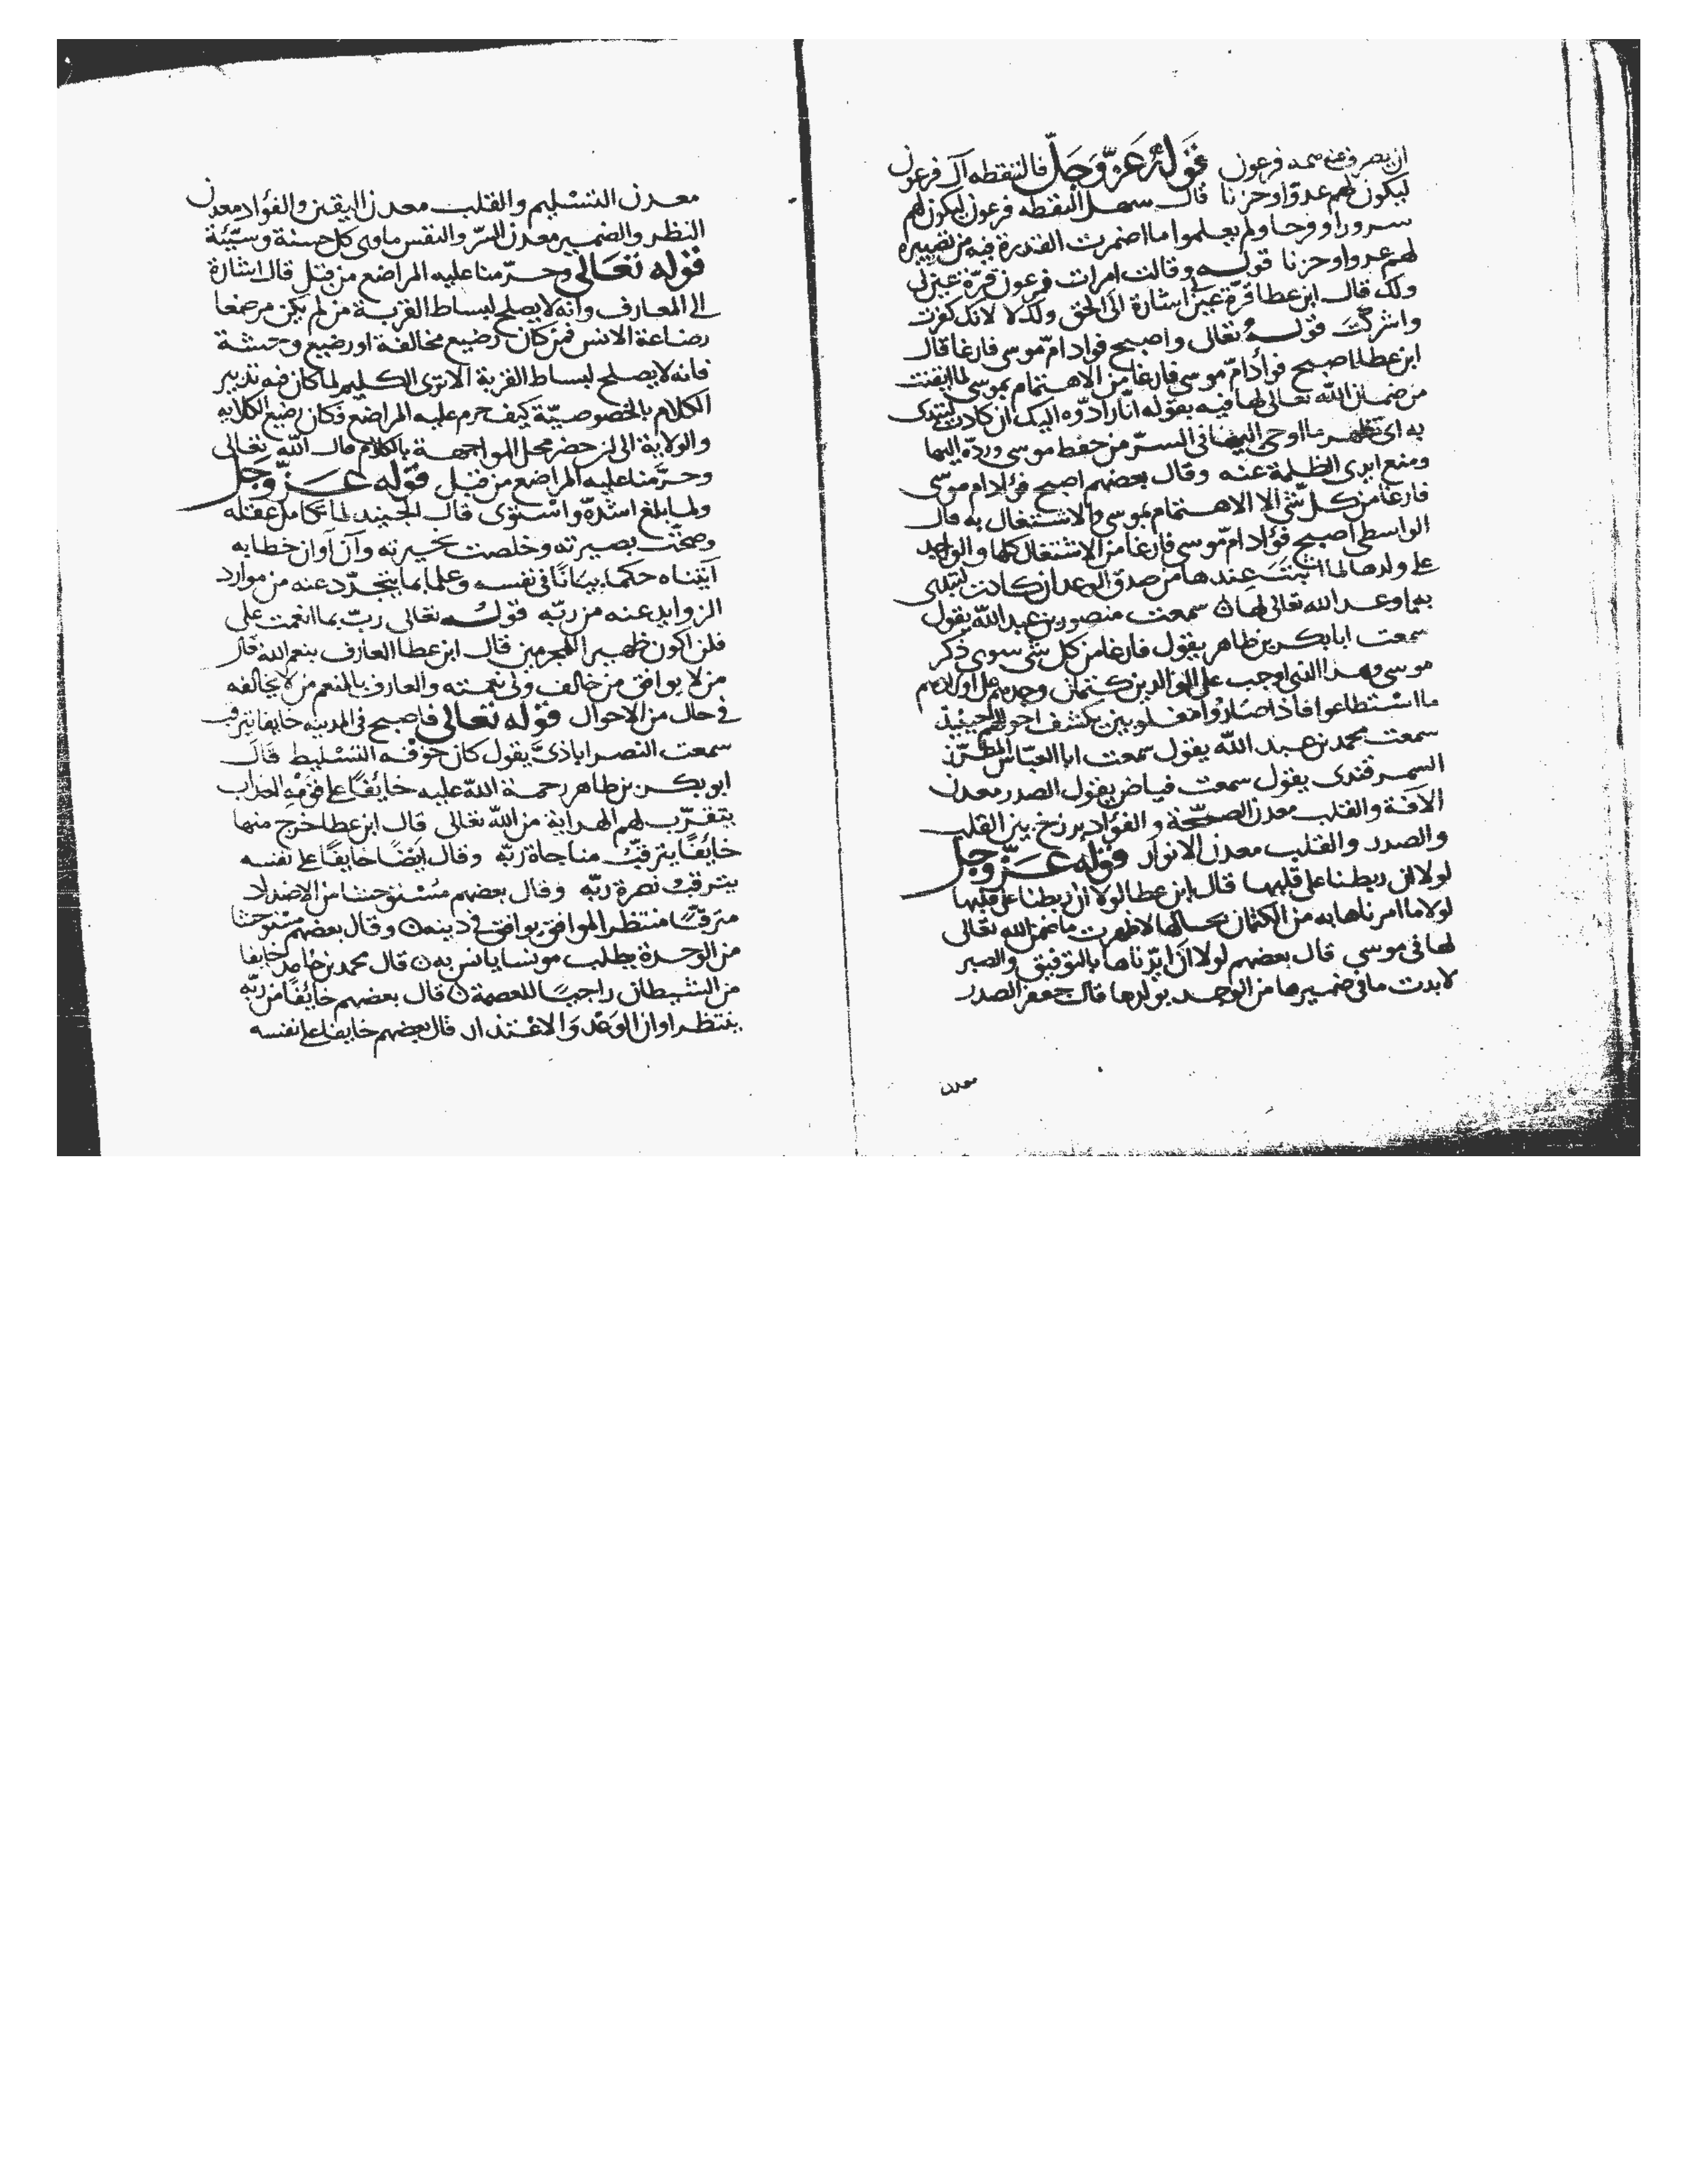 ان يصرف عنهم فرعون قوله عز وجل فالتقطه آل فرعون
ليكون لهم عدوّا وحزنا قال سهل التقطه فرعون ليكون لهم
سرورا وفرحا ولم يعلموا ما اضمرت القدرة فيه من تصييره
لهم عدوا وحزنا قوله وقالت امرات فرعون قرّة عين لي
ولك قال ابن عطا قرّة عين اشارة الى الحق ولك لا لانك كفرت
واشركت قوله تعالى واصبح فواد امّ موسى فارغا قال
ابن عطا اصبح فوأد امّ موسى فارغا من الاهتمام بموسى لما ايقنت
من ضمان الله تعالى لها فيه بقوله انّا رادّوه اليك ان كادت لتبدى
به اى تظهر ما اوحى اليها في السرّ من حفظ موسى وردّه اليها
ومنع ايدى الظلمة عنه وقال بعضهم اصبح فؤاد ام موسى
فارغا من كل شي الا الاهتمام بموسى والاشتغال به قال
الواسطى اصبح فؤاد امّ موسى فارغا من الاشتغال كلها والواجد
على ولدها لما اثبتت عندها من صدق الوعد ان كادت لتبدى
بما وعد الله تعالى لها ن سمعت منصور بن عبد الله يقول
سمعت ابا بكر بن ظاهر يقول فارغا من كل شى سوى ذكر
موسى وهذا الذى اوجب على الوالدين كتمان وجدهم على اولادهم
ما استطاعوا فاذا صاروا مغلوبين يكشف احوالهم حينيذ
سمعت محمد بن عبد الله يقول سمعت ابا العبّاس المطرّز
السمرقندى يقول سمعت فياض يقول الصدر معدن
الآفة والقلب معدن الصحّة والفؤاد برزخ بين القلب
والصدر والقلب معدن الانوار قوله عز وجل
لولا ان ربطنا على قلبها قال ابن عطا لولا ان ربطنا على قلبها
لولا ما امرناها به من الكتمان بحالها لاظهرت ما ضمن الله تعالى
لها في موسى قال بعضهم لولا ان ايّدناها بالتوفيق والصبر
لابدت ما في ضميرها من الوجد بولدها قال جعفر الصدر
معدن
معدن التسليم والقلب معدن اليقين والفؤاد معدن
النظر والضمير معدن السرّ والنفس ماوى كل حسنة وسيّئة
قوله تعالى وحرّمنا عليه المراضع من قبل قال اشارة
الى المعارف وانه لا يصلح لبساط القربة من لم يكن مرضعا
رضاعة الانس فمن كان رضيع مخالفة او رضيع وحشة
فانه لا يصلح لبساط القربة الا ترى الكليم لما كان فيه تدبير
الكلام بالخصوصيّة كيف حرم عليه المراضع فكان رضيع الكلايه
والولاية الى ان حضر محل المواجهة بالكلام قال الله تعالى
وحرّمنا عليه المراضع من قبل قوله عز وجل
ولما بلغ اشدّه واستوى قال الجنيد لما تكامل عقله
وصحّت بصيرته وخلصت نحيرته وآن آوان خطابه
آتيناه حكما بيانًا في نفسه وعلما بما يتجرّد عنه من موارد
الزوايد عنه من ربّه قوله تعالى ربّ بما انعمت على
فلن اكون ظهيرا للمجرمين قال ابن عطا العارف بنعم الله قال
من لا يوافق من خالف ولى نعمته والعارف بالمنعم من لا يخالفه
في حال من الاحوال قوله تعالى فاصبح في المدينه خايفا يترقب
سمعت النصراباذىّ يقول كان خوفه التسليط قال
ابو بكر بن طاهر رحمة الله عليه خائفًا على قومه العذاب
يتقرّب لهم الهداية من الله تعالى قال ابن عطا خرج منها
خائفًا يترقّب مناجاة ربّه وقال ايضًا خايفًا على نفسه
يترقب نصرة ربّه وقال بعضهم مستوحشا من الاضداد
مترقّبًا منتظر الموافق يوافق في دينه ن وقال بعضهم مستوحشا
من الوحدة يطلب مونسا يانس به ن قال محمد بن حامد خايفا
من الشيطان راجيًا للعصمة ن قال بعضهم خائفًا من ربّه
ينتظر اوان الوعد والاعتذار قال بعضهم خايفا على نفسه